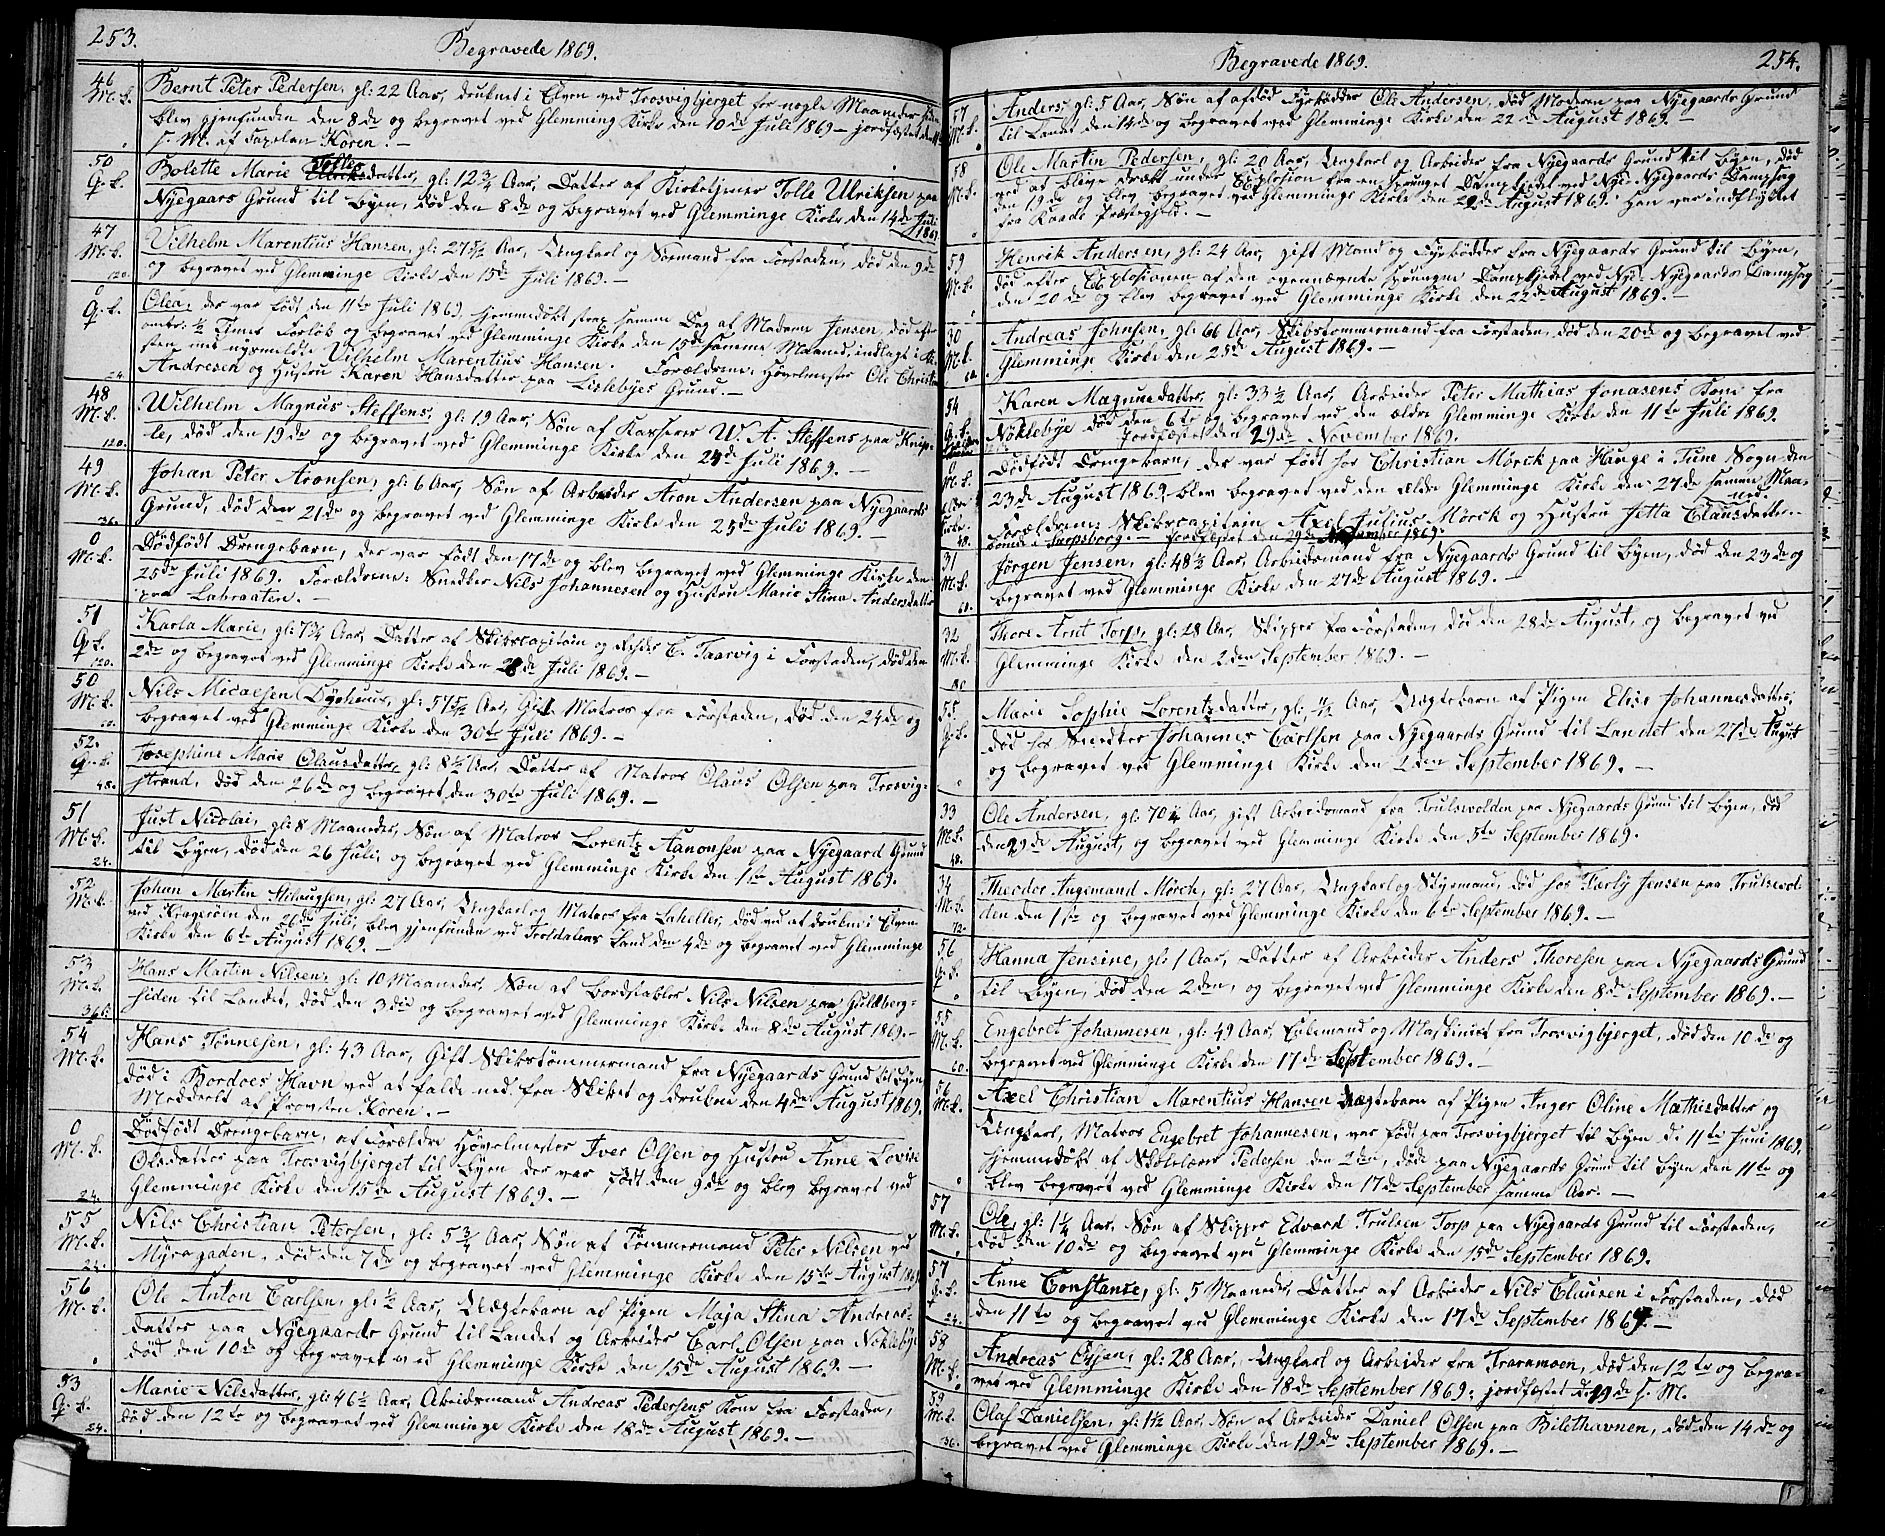 253.
Begravede 1869.
46
M. L.
Bernt Peter Pedersen, gl: 22 Aar, druknet i Elven ved Trosvigbjerget for nogle Maaneder siden
blev gjenfunden den 8de og begravet ved Glemming Kirke den 10de Juli 1869 – jordfæstet den
s. M. af Capelan Koren. –
50
Q. L.
Bolette Marie Tolles datter, gl: 12 3/4 Aar, Datter af Kirketjener Tolle Ulriksen paa
Nyegaars Grund til Byen, død den 8de og begravet ved Glemminge Kirke den 14de Juli
1869
47
M. L.
120.
Vilhelm Marentius Hansen, gl: 27 5/12 Aar, Ungkarl og Sømand fra Forstaden, død den 9de
og begravet ved Glemminge Kirke den 15de Juli 1869. –
0
Q. L.
24.
Olea, der var født den 11te Juli 1869, hjemmedøbt strax samme Dag af Madam Jensen, død efter
omtr: 1/2 Times Forløb og begravet ved Glemminge Kirke den 15de samme Maaned, indlagt i Ki-
sten med nysmeldte Vilhelm Marentius Hansen. Forældrene: Høvelmester Ole Christian
Andresen og Hustru Karen Hansdatter paa Lislebyes Grund. –
48
M. L.
120.
Wilhelm Magnus Steffens, gl: 19 Aar, Søn af Kasserer W. A. Steffens paa Knip-
le, død den 19de og begravet ved Glemminge Kirke den 24de Juli 1869. –
49
M. L.
36.
Johan Peter Aronsen, gl: 6 Aar, Søn af Arbeider Aron Andersen paa Nyegaards
Grund, død den 21de og begravet ved Glemminge Kirke den 25de Juli 1869. –
0
M. L.
Dødfødt Drengebarn, der var født den 17de og blev begravet ved Glemminge Kirke den
25de Juli 1869. Forældrene: Snedker Nils Johannesen og Hustru Marie Stina Andersdatter
paa Labraaten. –
51
Q. L.
120.
Karla Marie, gl: 7 1/4 Aar, Datter af Skibscapitain og Rheder C. Taarvig i Forstaden, død den
2de og begravet ved Glemminge Kirke den 28de Juli 1869. –
50
M. L.
60.
Nils Micaelsen Dyrhuus, gl: 57 5/12 Aar, Gift Matros fra Forstaden, død den 24de og
begravet ved Glemminge Kirke den 30te Juli 1869. –
52.
Q. L.
48.
Josephine Marie Olausdatter, gl: 8 1/2 Aar, Datter af Matros Olaus Olsen paa Trosvig-
strand, død den 26de og begravet den 30te Juli 1869. –
51
M. L.
24.
Just Nicolai, gl: 8 Maaneder, Søn af Matros Lorentz Aanonsen paa Nyegaard Grund
til Byen, død den 26 Juli, og begravet ved Glemminge Kirke den 1ste August 1869.
52
M. L.
Johan Martin Stilaugsen, gl: 27 Aar, Ungkarl og Matros fra Lahelle, død ved at drukne i Elven
ved Kragerøen den 26de Juli, blev gjenfunden ved Troldalens Land den 4de og begravet ved Glemminge
Kirke den 6te August 1869. –
53
M. L.
36.
Hans Martin Nilsen, gl: 10 Maaneder, Søn af Bordstabler Nils Nilsen paa Guldberg-
siden til Landet, død den 3die og begravet ved Glemminge Kirke den 8de August 1869. –
54
M. L.
Hans Tønnesen, gl: 43 Aar, Gift Skibstømmermand fra Nyegaards Grund til Byen
død i Bordoes Havn ved at falde ned fra Skibet og drukne den 4de August 1869.
Meddeelt af Provsten Koren. –
0
M. L.
24.
Dødfødt Drengebarn, af Forældre Høvelmester Iver Olsen og Hustru Anne Lovise
Olsdatter paa Trosvigbjerget til Byen der var født den 9de og blev begravet ved
Glemminge Kirke den 15de August 1869. –
55
M. L.
24.
Nils Christian Petersen, gl: 5 3/4 Aar, Søn af Tømmermand Peter Nilsen ved
Myragaden, død den 7de og begravet ved Glemminge Kirke den 15de August 1869
56
M. L.
Ole Anton Carlsen, gl: 1/2 Aar, Uægtebarn af Pigen Maja Stina Andreas-
datter paa Nyegaards Grund til Landet og Arbeider Carl Olsen paa Nøklebye
død den 10de og begravet ved Glemminge Kirke den 15de August 1869. –
53
Q. L.
24.
Marie Nilsdatter, gl: 46 1/2 Aar, Arbeidsmand Andreas Pedersens Kone fra Forstaden,
død den 12te og begravet ved Glemminge Kirke den 18de August 1869. –
Begravede 1869.
254.
57
M. L.
Anders, gl: 5 Aar, Søn af afdød Fyrbødder Ole Andersen, død Moderen paa Nyegaards Grund
til Landet den 14de og begravet ved Glemminge Kirke den 22de August 1869. –
58
M. L.
Ole Martin Pedersen, gl: 20 Aar, Ungkarl og Arbeider fra Nyegaards Grund til Byen, død
ved at blive dræbt under Explosion fra en sprunget Dampkjedel ved Nye-Nyegaards Dampsag
den 19de og blev begravet ved Glemminge Kirke den 22de August 1869. Han var indflyttet
fra Raade Præstegjeld. –
59
M. L.
Henrik Andersen, gl: 24 Aar, gift Mand og Fyrbødder fra Nyegaards Grund til Byen,
død efter Explosionen af den ovennævnte sprungne Dampkjedel ved Nye-Nyegaards Dampsag
den 20de og blev begravet ved Glemminge Kirke den 22de August 1869. –
30
M. L.
60
Andreas Johnsen, gl: 66 Aar, Skibstømmermand fra Forstaden, død den 20de og begravet ved
Glemminge Kirke den 25de August 1869. –
54
Q. L.
Karen Magnusdatter, gl: 33 1/2 Aar, Arbeider Peter Mathias Jonasens Kone fra
Nøklebye død den 6te og begravet ved den ældre Glemminge Kirke den 11te Juli 1869.
Jordfæstet den 29de November 1869.
0
M. L.
48.
Dødfødt Drengebarn, der var født hos Christian Mørck paa Hauge i Tune Sogn den
23de August 1869, blev begravet ved den ældre Glemminge Kirke den 27de samme Maa-
ned.
Forældrene: Skibscapitain Axel Julius Mørck og Hustru Jetta Clausdatter
boende i Sarpsborg. – Jordfæstet den 29de November 1869.
31
M. L.
60.
Jørgen Jensen, gl: 48 1/2 Aar, Arbeidsmand fra Nyegaards Grund til Byen, død den 23de og
begravet ved Glemminge Kirke den 27de August 1869. –
32
M. L.
180
Thore Arnt Torp, gl: 28 Aar, Skipper fra Forstaden, død den 28de August, og begravet ved
Glemminge Kirke den 2den September 1869. –
55
Q. L.
Marie Sophie Lorentzdatter, gl: 1/2 Aar, Uægtebarn af Pigen Elise Johannesdatter,
død hos Snedker Johannes Carlsen paa Nyegaards Grund til Landet den 27de August
og begravet ved Glemminge Kirke den 2den September 1869. –
33
M. L.
48.
Ole Andersen, gl: 70 1/4 Aar, gift Arbeidsmand fra Trulsvolden paa Nyegaards Grund til Byen, død
den 29de August, og begravet ved Glemminge Kirke den 5te September 1869.
34
M. L.
72.
Theodor Ingemand Mørch, gl: 27 Aar, Ungkarl og Styrmand, død hos Tarly Jensen paa Trulsvol-
den den 1ste og begravet ved Glemminge Kirke den 6te September 1869. –
56
Q. L.
Hanna Jensine, gl: 1 Aar, Datter af Arbeider Anders Thoresen paa Nyegaards Grund
til Byen, død den 2den, og begravet ved Glemminge Kirke den 8de September 1869. –
55
M. L.
60.
Engebret Johannesen, gl: 49 Aar, Enkemand og Maskinist fra Trosvigbjerget, død den 10de og
begravet ved Glemminge Kirke den 17de September 1869. –
56
M. L.
Axel Christian Marentius Hansen Uægtebarn af Pigen Inger Oline Mathisdatter og
Ungkarl, Matros Engebret Johannesen, var født paa Trosvigbjerget til Byen d. 11te Juni 1869,
hjemmedøbt af Skolelærer Pedersen den 2den, døde paa Nyegaards Grund til Byen den 11te og
blev begravet ved Glemminge Kirke den 17de September samme Aar. –
57
M. L.
Ole, gl: 1 1/4 Aar, Søn af Skipper Edvard Trulsen Torp paa Nyegaards Grund til Forstaden,
død den 10de og begravet ved Glemminge Kirke den 15de September 1869.
57
Q. L.
24.
Anne Constanse, gl: 5 Maaneder, Datter af Arbeider Nils Clausen i Forstaden, død
den 11te og begravet ved Glemminge Kirke den 17de September 1869. –
58
M. L.
Andreas Olsen, gl: 28 Aar, Ungkarl og Arbeider fra Traramoen, død den 12te og begra-
vet ved Glemminge Kirke den 18de September 1869; jordfæstet d. 19de s. M.
59
M. L.
36.
Olaf Danielsen, gl: 1 1/2 Aar, Søn af Arbeider Daniel Olsen paa Bilethavnen, død den 14de og
begravet ved Glemminge Kirke den 19de September 1869. –